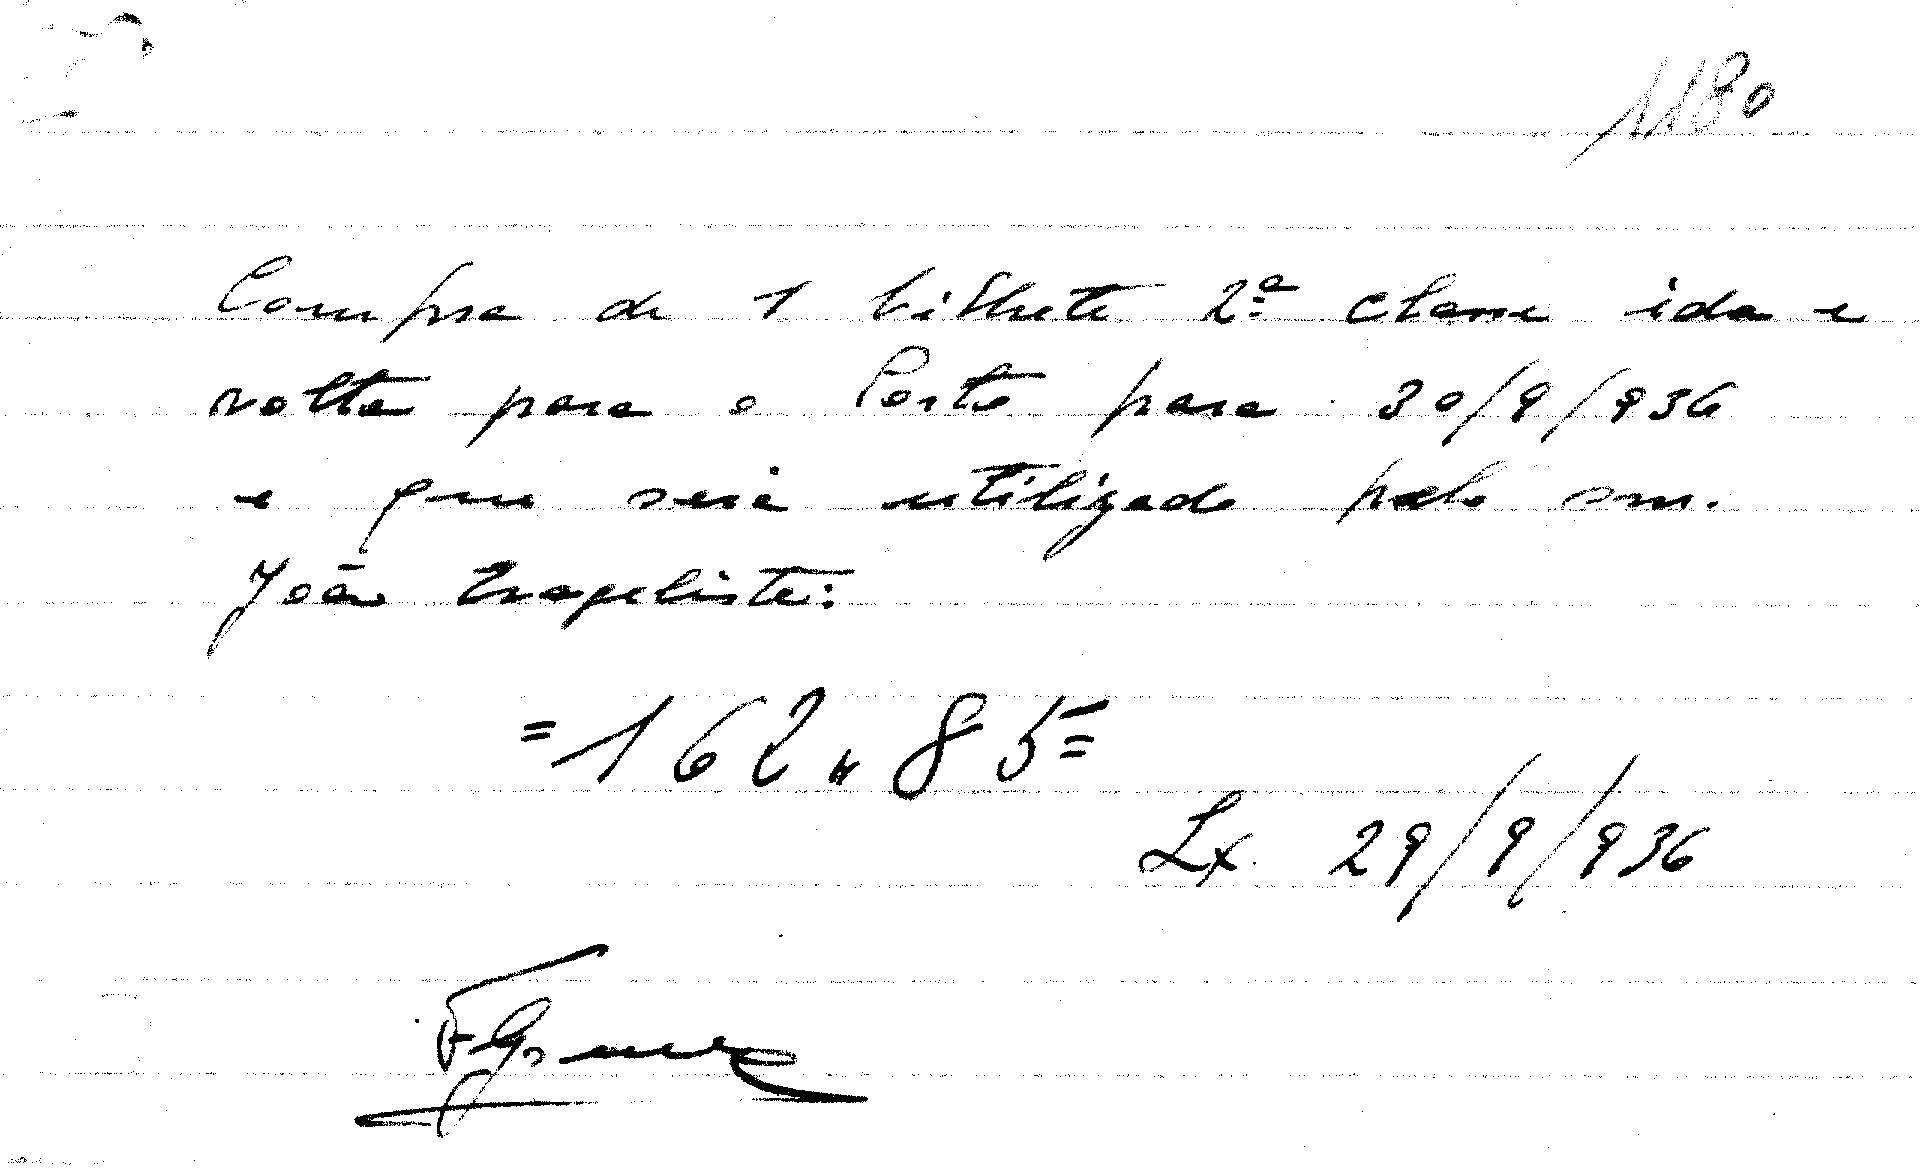 1180
Compra de 1 bilhete 2ª classe ida e
volta para o Porto para 30/9/936
e que será utilizado pelo snr.
João Evagelista:
=162,,85=
Lx. 29/9/936